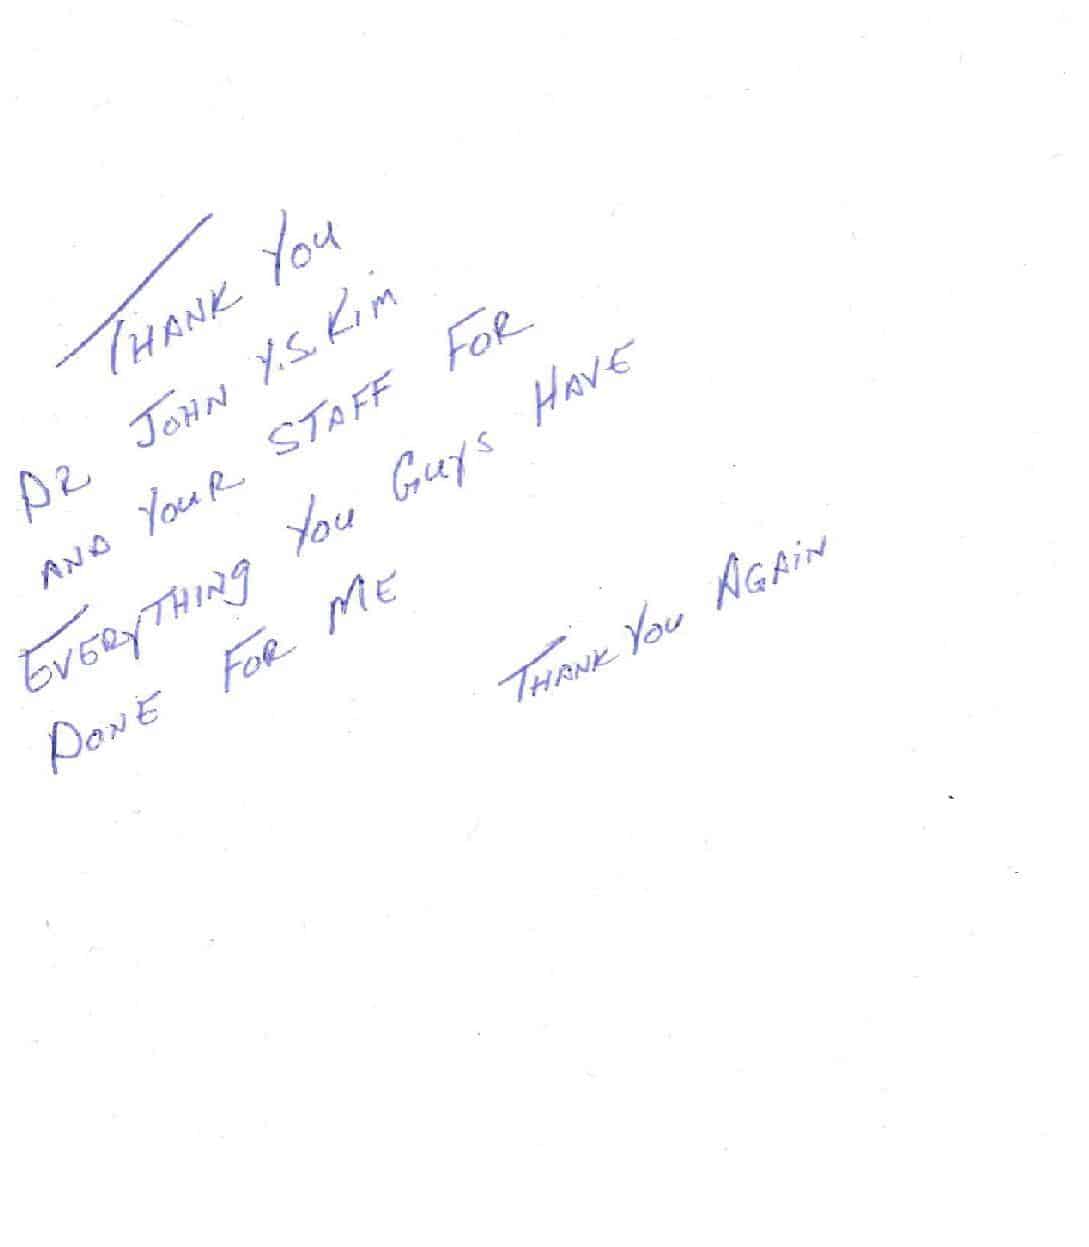 THANK YOU
DR JOHN Y.S. KIM
AND YOUR STAFF FOR
EVERYTHING YOU GUYS HAVE
DONE FOR ME
THANK YOU AGAIN